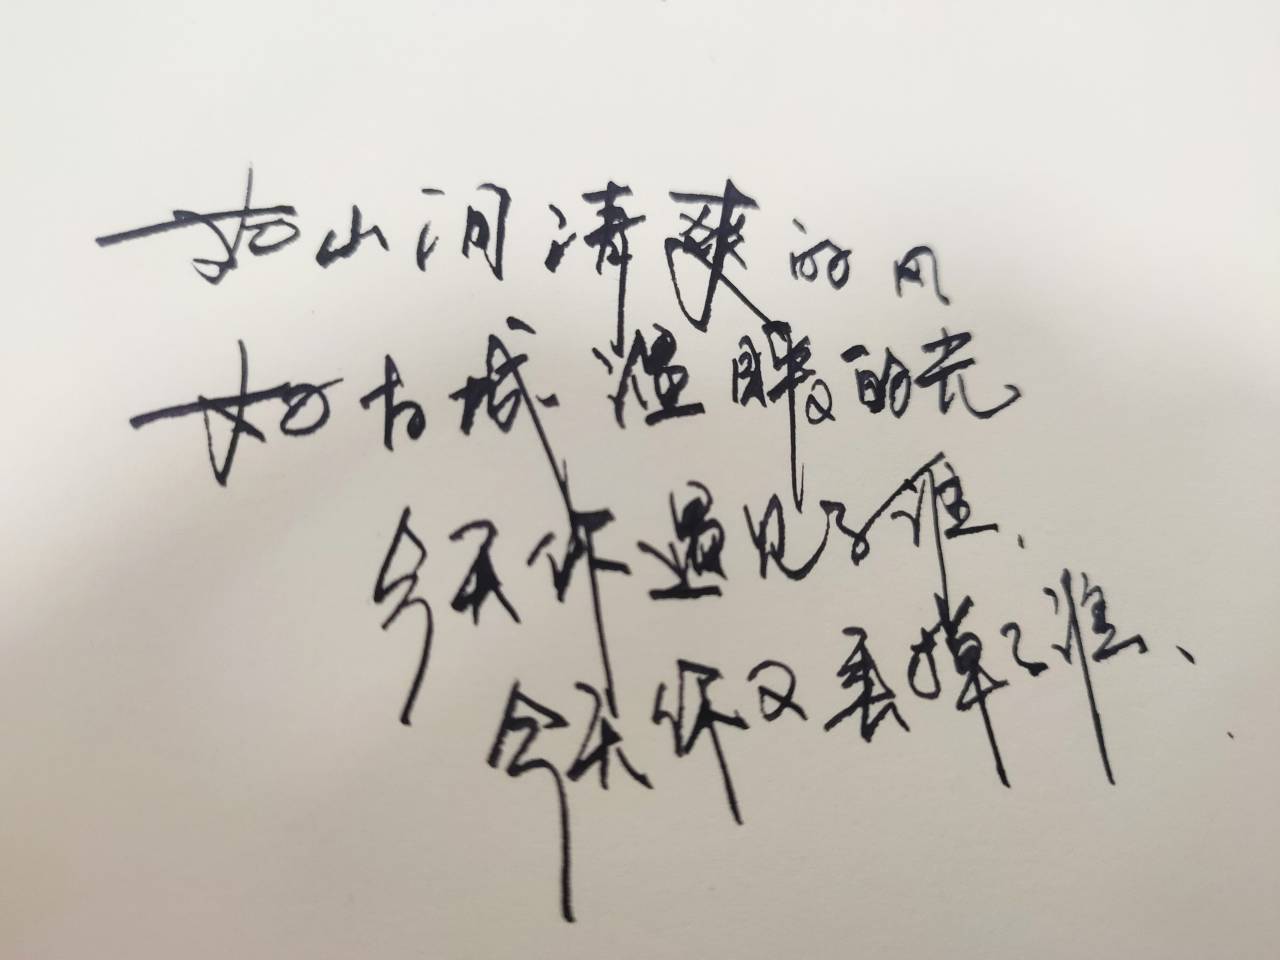 如山间清爽的风
如古城温暖的光
今天你遇见了谁、
今天你又丢掉了谁、